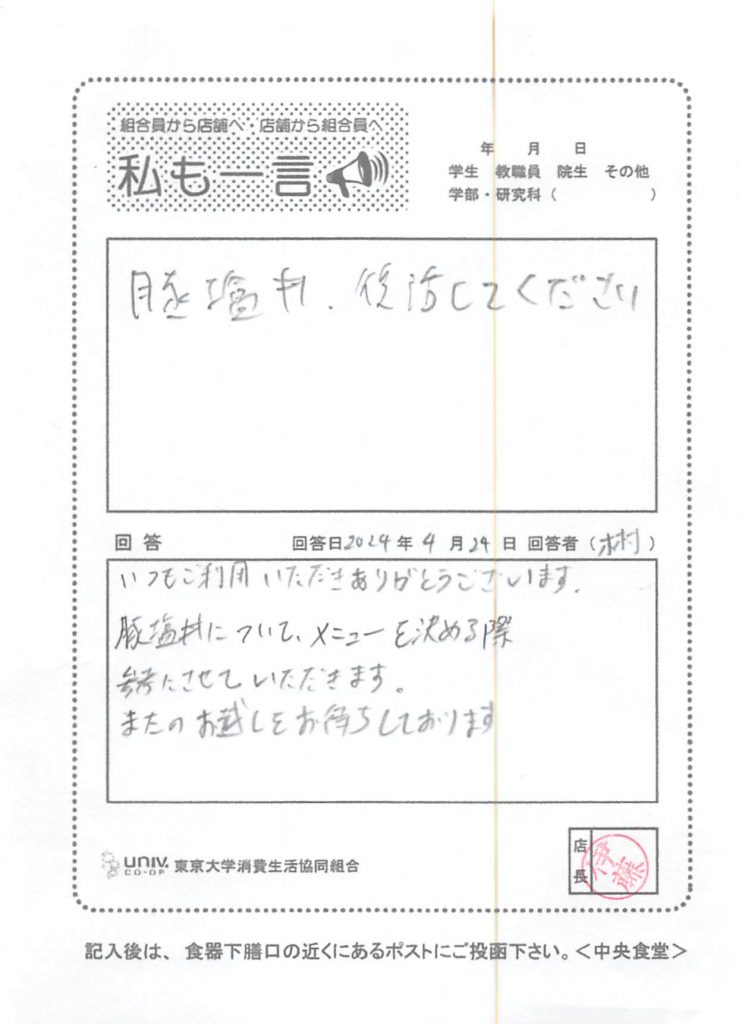 組合員から店舗へ・店舗から組合員へ
私も一言
年 月 日
学生 教職員 院生 その他
学部・研究科（ ）
豚塩丼、復活してください
回答 回答日2024年4月24日 回答者（木村）
いつもご利用いただきありがとうございます。
豚塩丼について、メニューを決める際
参考にさせていただきます。
またのお越しをお待ちしております
UNIV. CO-OP 東京大学消費生活協同組合
店長 伊藤
記入後は、食器下膳口の近くにあるポストにご投函下さい。＜中央食堂＞